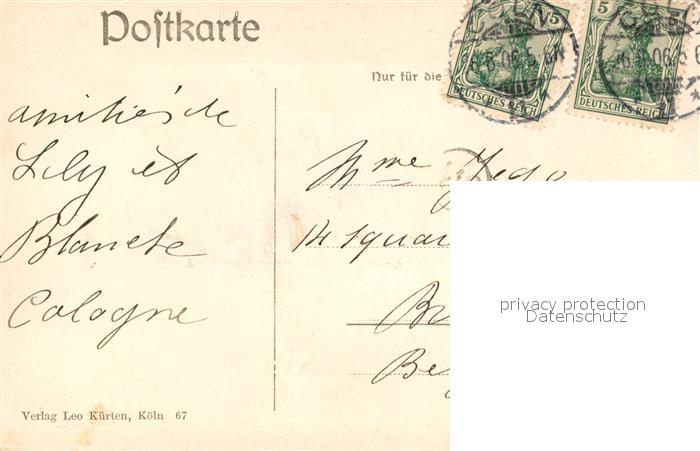 Postkarte
5
5
DEUTSCHES REICH
DEUTSCHES REICH
Nur für die
amitiés de
Lily et
Blanche
Cologne
Mme
14 Squar
Be
privacy protection
Datenschutz
Verlag Leo Kürten, Köln 67